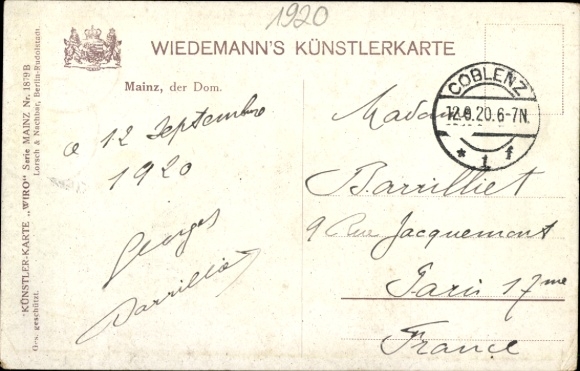 1920
WIEDEMANN'S KÜNSTLERKARTE
Mainz, der Dom.
"KÜNSTLER-KARTE „WIRO" Serie MAINZ Nr. 1879 B
Lorsch & Nachbar, Berlin-Rudolstadt.
Ges. geschützt.
12 Septembre
1920
Georges
Barrilliet
COBLENZ
12.9.20.6-7N.
* 1 f
Madame
Barrilliet
9 Rue Jacquemont
Paris 17me
France